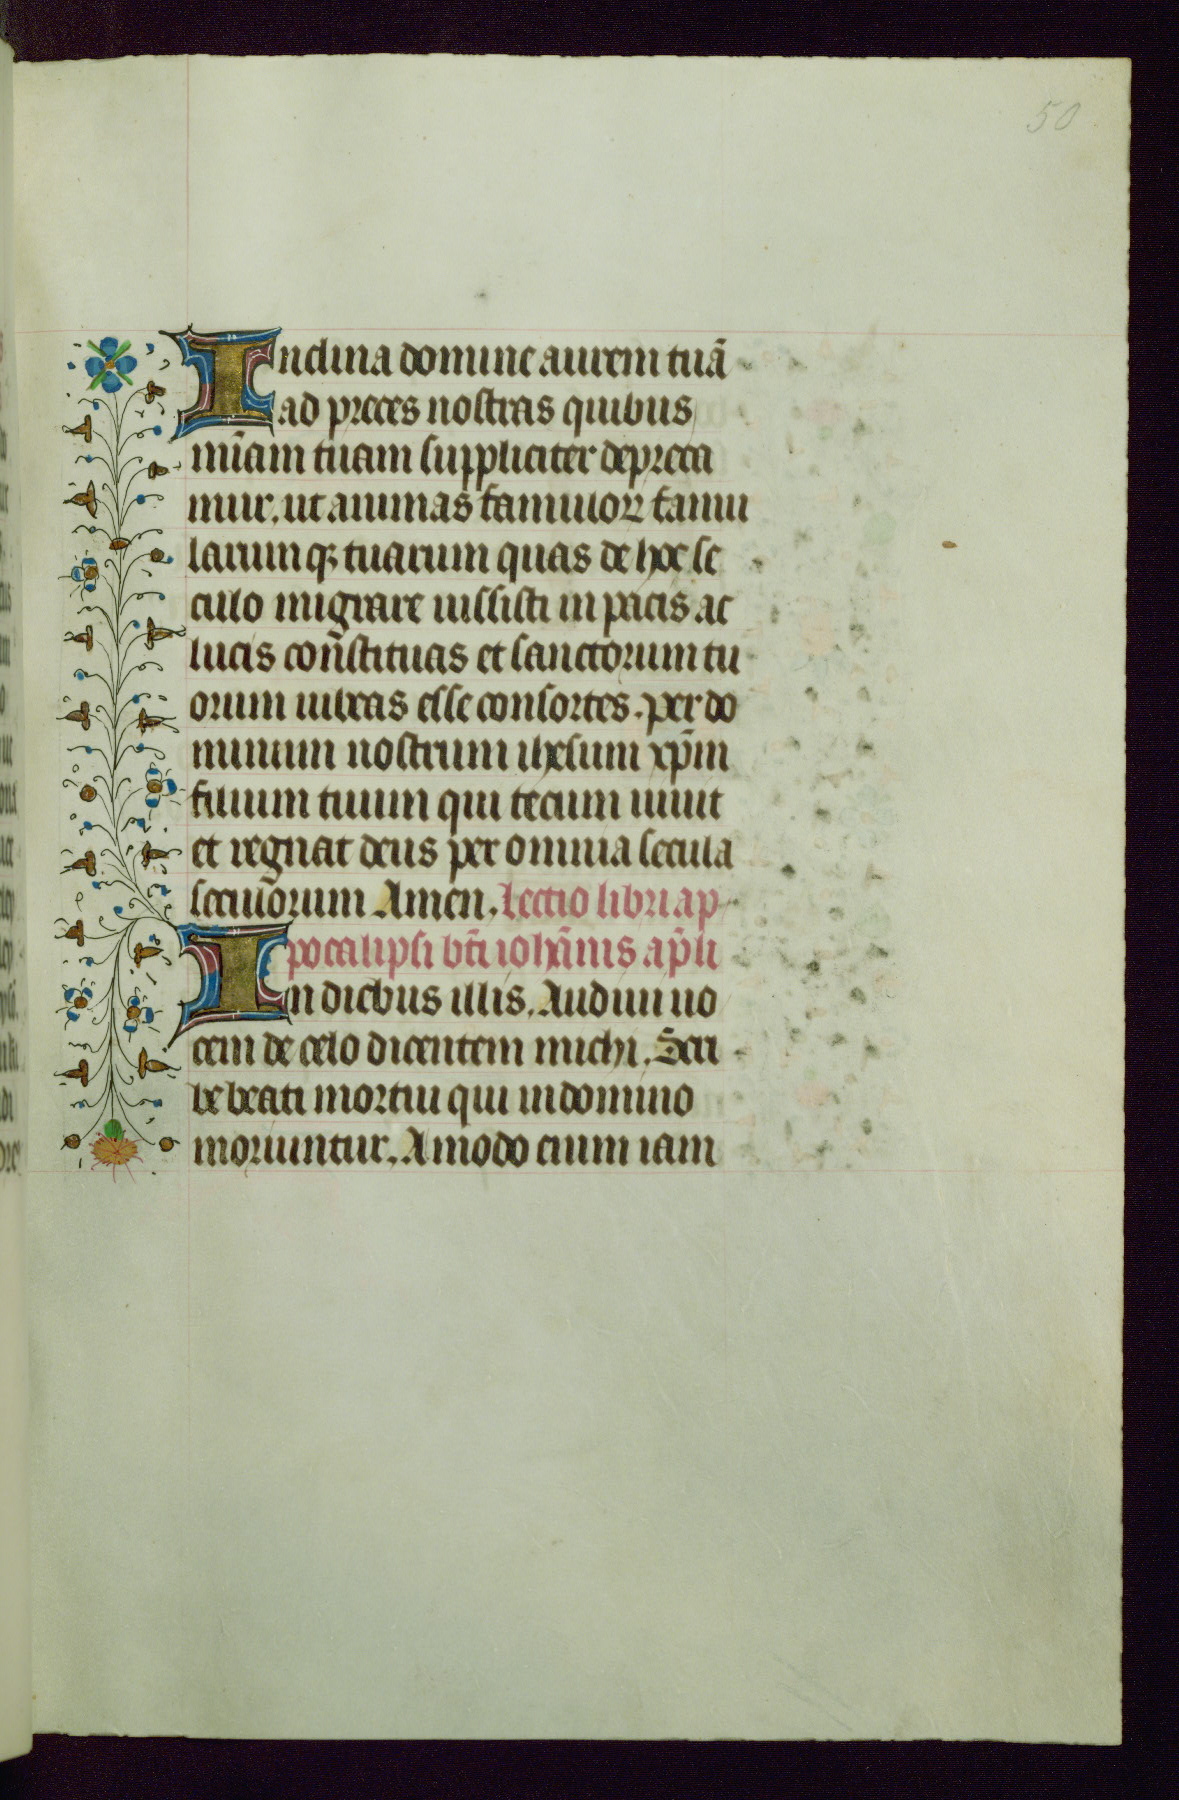 50
Inclina domine aurem tuā
ad preces nostras quibus
mīam tuam suppliciter depreca
mur. ut animas famuloꝝ famu
larumqꝫ tuarum quas de hoc se
culo migrare iussisti in pacis ac
lucis con̄stituas et sanctorum tu
orum iubeas esse consortes. per do
minum nostrum ihesum xp̄m
filium tuum qui tecum uiuit
et regnat deus per omnia secula
seculorum Amen. Lectio libri ap
pocalipsi bt̄i iohānis ap̄li
In diebus illis. Audiui uo
cem de celo dicentem michi. Scri
be beati mortui qui in domino
moriuntur. Amodo enim iam